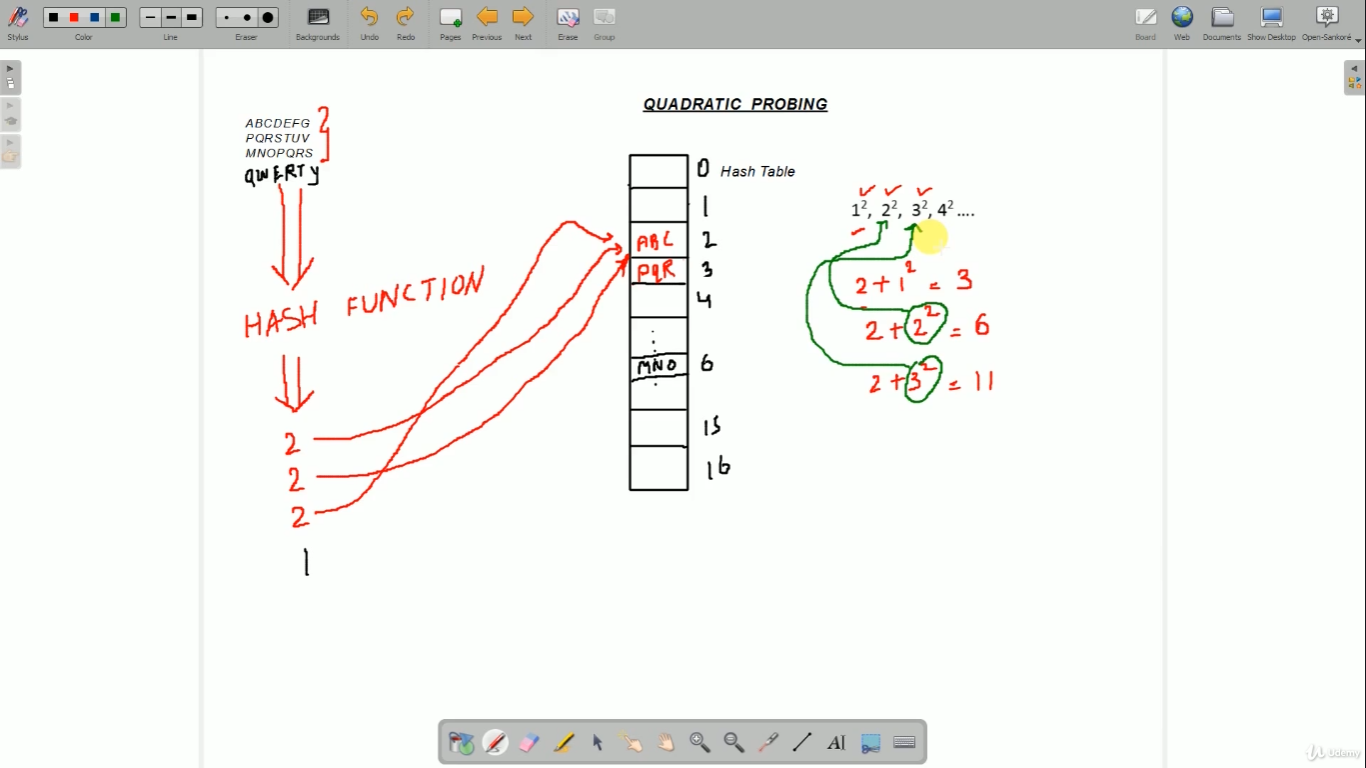 Stylus Color Line Eraser Backgrounds Undo Redo Pages Previous Next Erase Group Board Web Documents Show Desktop Open-Sankoré
QUADRATIC PROBING
ABCDEFG
PQRSTUV
MNOPQRS
QWERTY
HASH FUNCTION
2
2
2
1
0 Hash Table
1
ABC 2
PQR 3
4
MNO 6
15
16
1², 2², 3², 4² ....
2 + 1² = 3
2 + 2² = 6
2 + 3² = 11
AI
Udemy